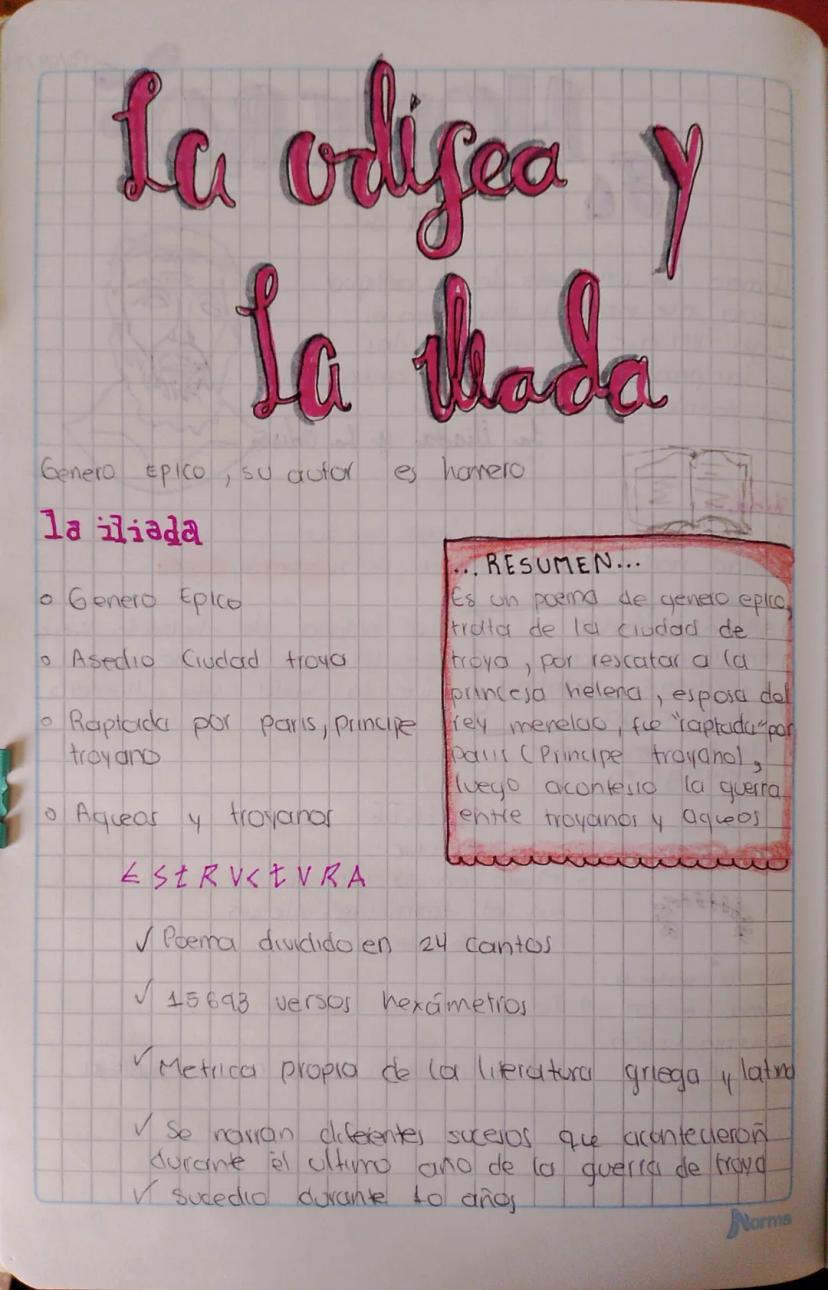 La odisea y
La iliada
Genero Epico, su autor es homero
la iliada
o Genero Epico
o Asedio Ciudad troya
o Raptada por paris, principe
troyano
o Aqueos y troyanos
...RESUMEN...
Es un poema de genero epico,
trata de la ciudad de
troya, por rescatar a la
princesa helena, esposa del
rey menelao, fue "raptada" por
paris (Principe troyano),
luego acontesio la guerra
entre troyanos y aqueos
EStRUCtURA
✓ Poema dividido en 24 cantos
✓ 15693 versos hexámetros
✓ Metrica propia de la literatura griega y latina
✓ Se narran diferentes sucesos que acontecieron
durante el ultimo año de la guerra de troya
✓ Sucedio durante 10 años
Norma